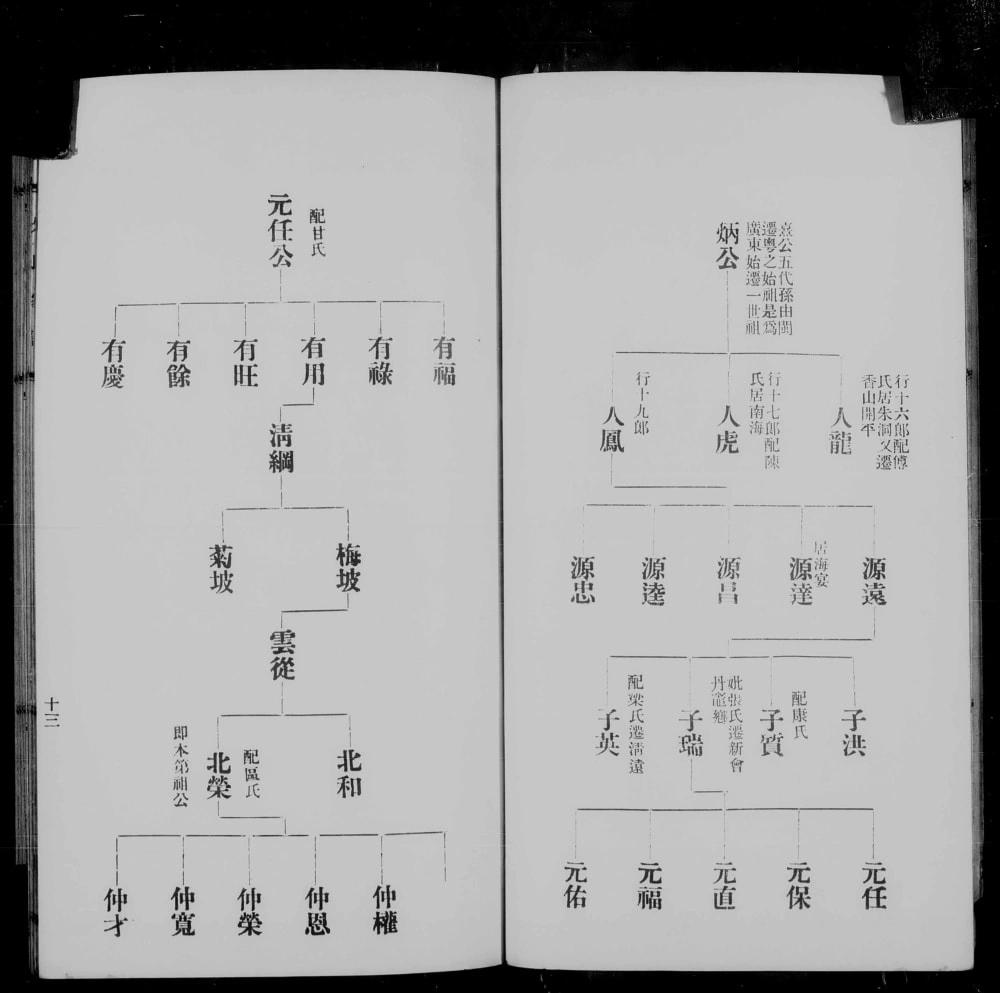 炳公
熹公五代孫由閩
遷粵之始祖是為
廣東始遷一世祖
人龍
行十六郎配傅
氏居朱洞又遷
香山開平
人虎
行十七郎配陳
氏居南海
人鳳
行十九郎
源遠
源達
居海宴
源昌
源逵
源忠
子洪
子質
配康氏
子瑞
妣張氏遷新會
丹竈鄉
子英
配梁氏遷清遠
元任
元保
元直
元福
元佑
元任公
配甘氏
有福
有祿
有用
有旺
有餘
有慶
清綱
梅坡
菊坡
雲從
北和
北榮
配區氏
即本第祖公
仲權
仲恩
仲榮
仲寬
仲才
十三